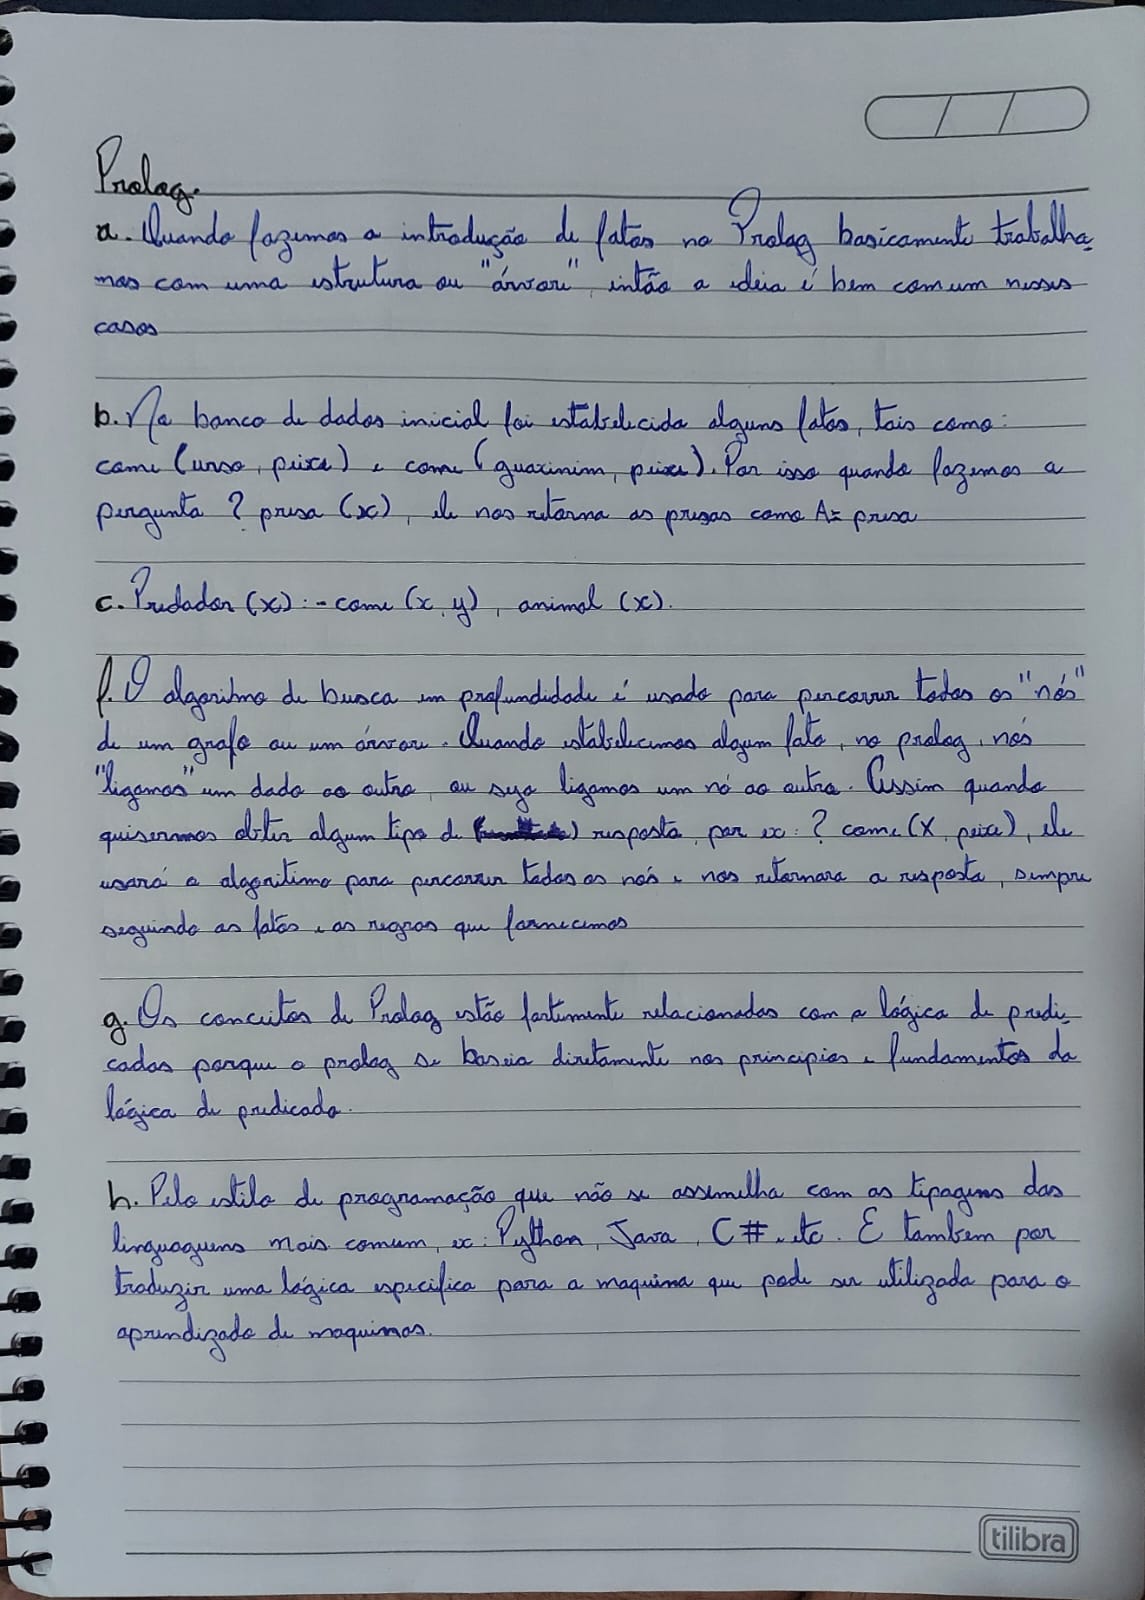 Prolog.
a. Quando fazemos a introdução de fatos no Prolog basicamente trabalha-
mos com uma estrutura ou "árvore", então a ideia é bem comum nesses
casos
b. No banco de dados inicial foi estabelecida alguns fatos, tais como:
come (urso, peixe) e come (guaxinim, peixe). Por isso quando fazemos a
pergunta ? presa (x), ele nos retorna as presas como A= presa
c. Predador (x) :- come (x, y), animal (x).
f. O algoritmo de busca em profundidade é usado para percorrer todos os "nós"
de um grafo ou um árvore. Quando estabelecemos algum fato, no prolog, nós
"ligamos" um dado ao outro, ou seja ligamos um nó ao outro. Assim quando
quisermos obter algum tipo de resposta, por ex: ? come (X, peixe), ele
usará o algoritimo para percorrer todos os nós e nos retornara a resposta, sempre
seguindo as fatos e as regras que fornecemos
g. Os conceitos de Prolog estão fortemente relacionados com a lógica de predi-
cados porque o prolog se baseia diretamente nos principios e fundamentos da
lógica de predicado.
h. Pelo estilo de programação que não se assemelha com as tipagens das
linguaguens mais comum, ex: Python, Java, C#, etc. E tambem por
traduzir uma lógica especifica para a maquina que pode ser utilizada para o
aprendizado de maquinas.
tilibra